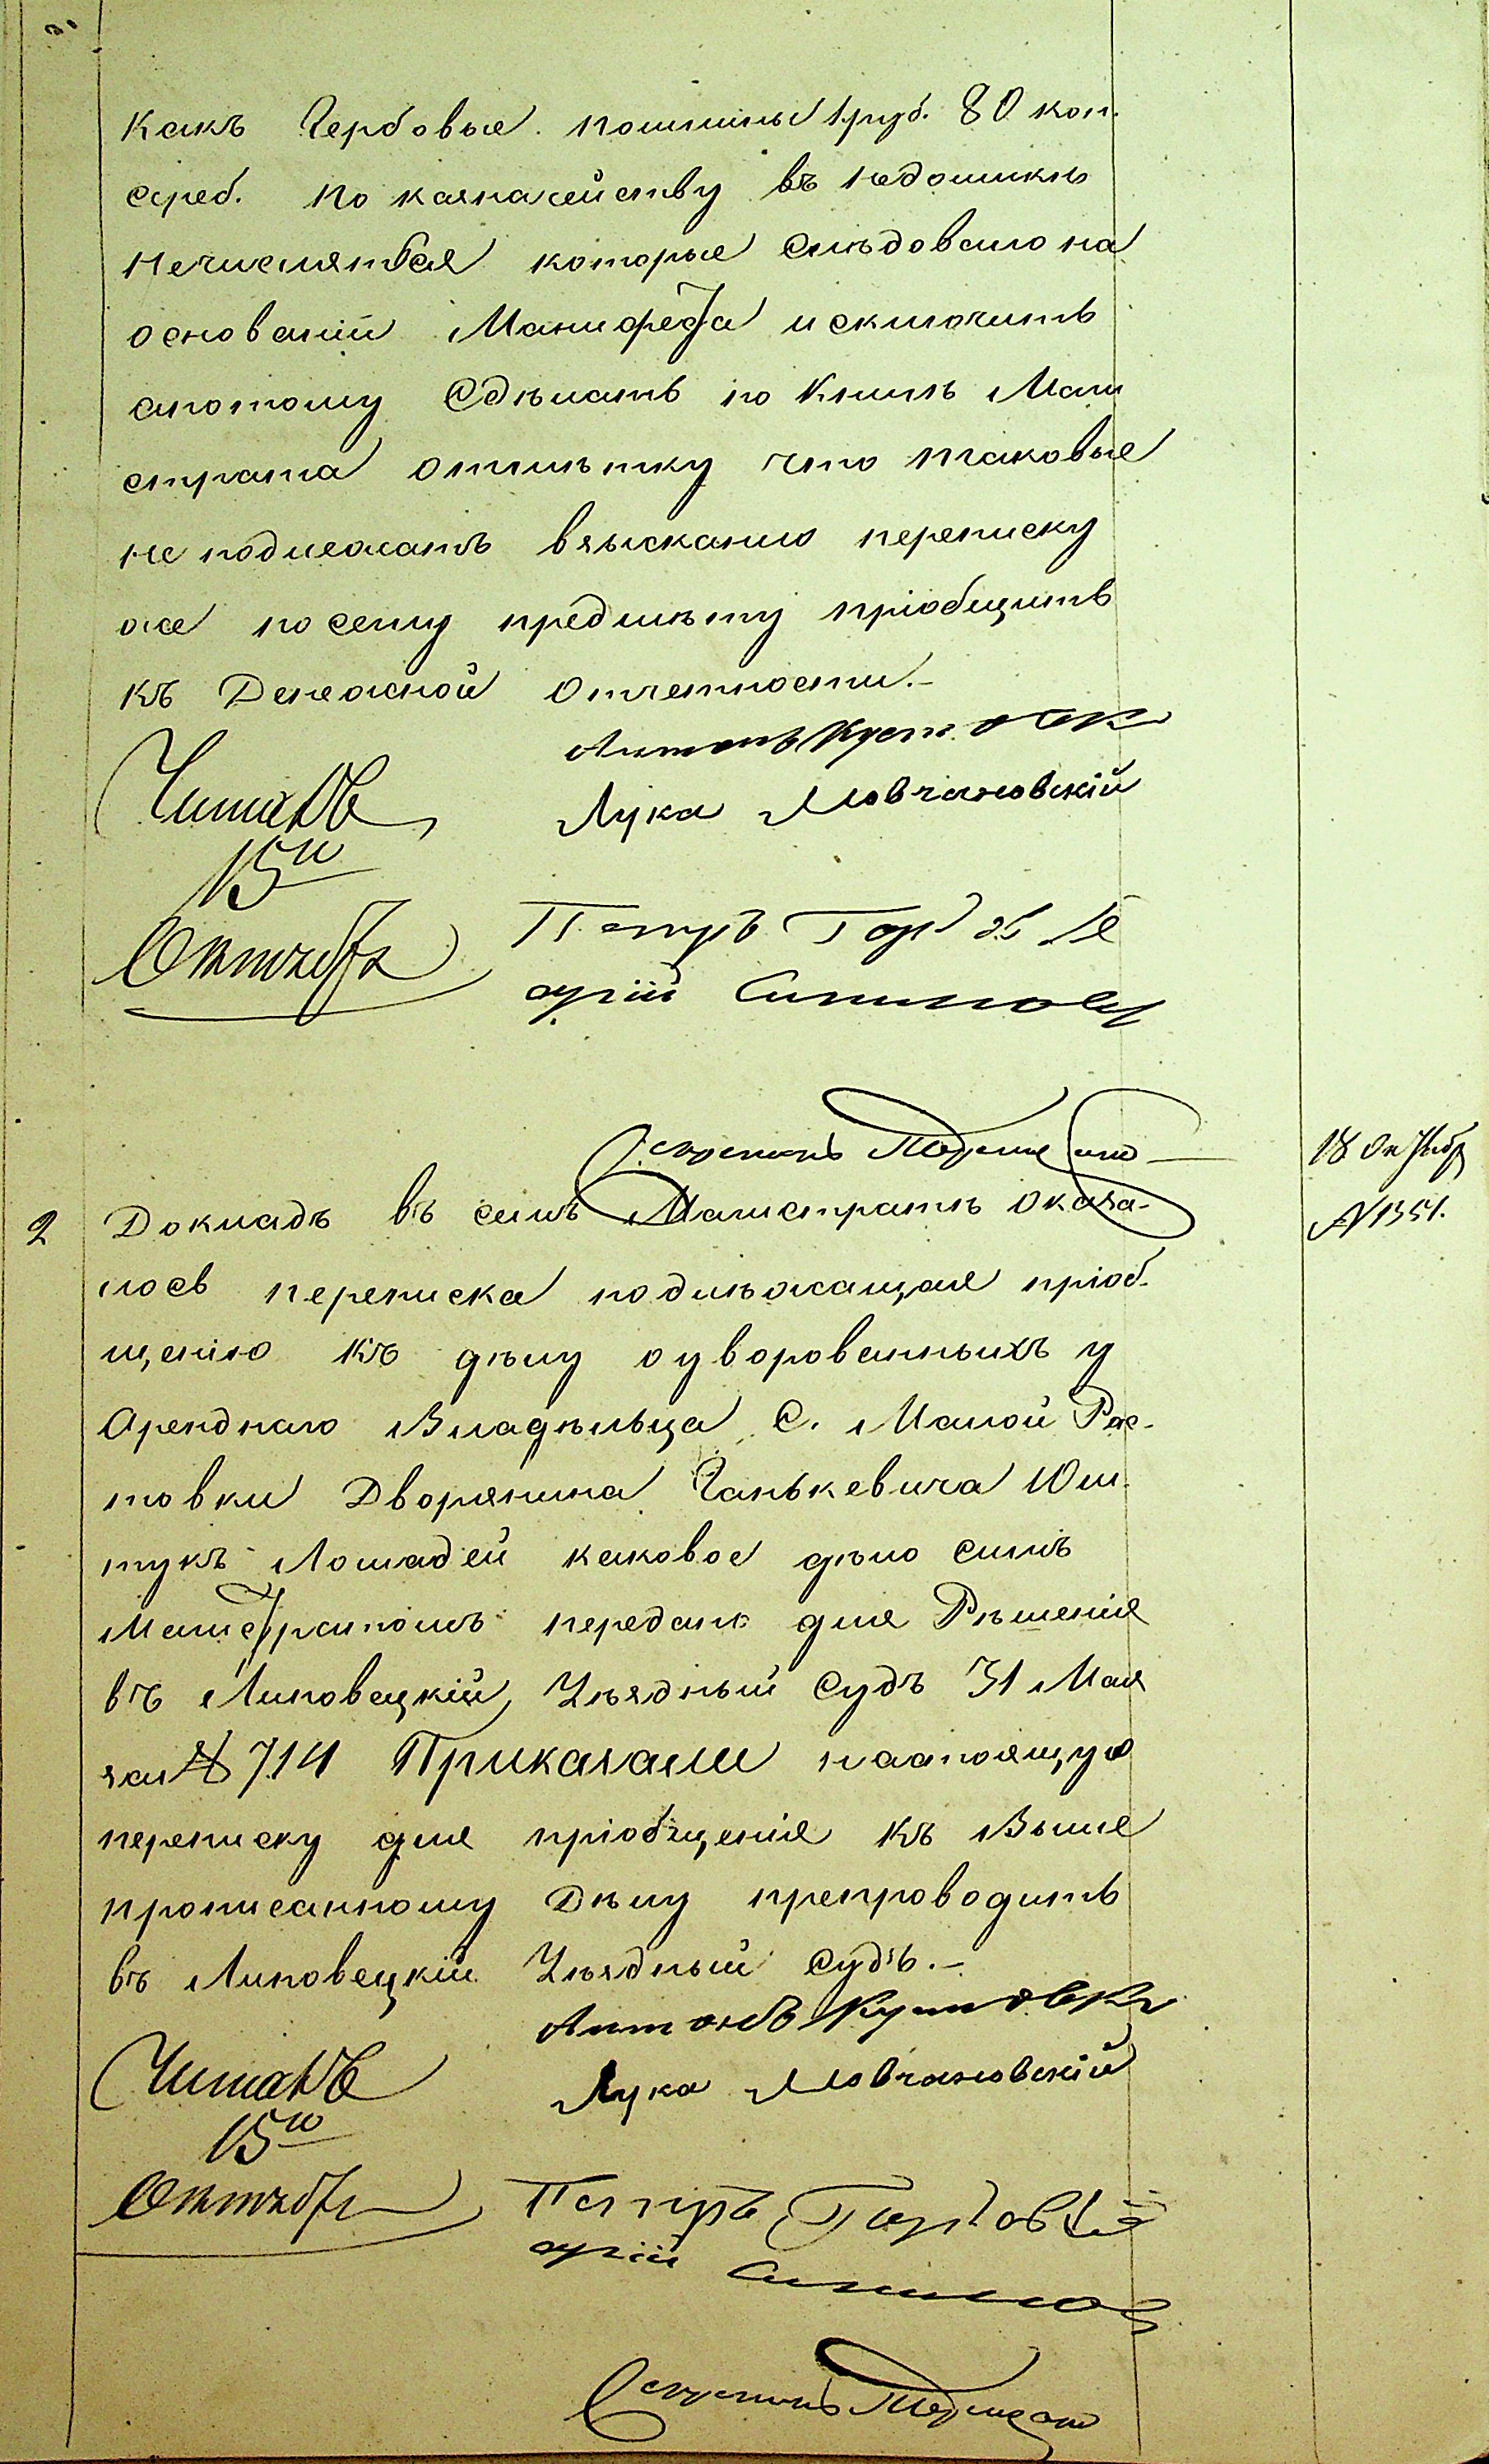 какъ Гербовые пошлины 1 руб. 80 коп.
сереб. по казначейству въ недоимкѣ
нечислятся которые слѣдовало на
основаніи Манифеста исключить
апотому Сдѣлать по Книгѣ Маги
страта отмѣтку что таковые
не подлежатъ взысканию переписку
же по сему предмѣту пріобщить
къ Денежной Отчетности.-
Антонъ
Лука Мовчановскій
Читалъ
15го
Октября
Петръ
Секретарь
18 Октябр
№ 1351.
2 Докладъ въ семъ Магистратѣ оказа-
лось переписка подлѣжащая пріоб-
щенію къ дѣлу о уворованныхъ у
Аренднаго Владѣльца С. Малой Рос-
товки Дворянина Ганькевича 10 ш-
тукъ Лошадей каковое дѣло симъ
Магистратомъ передано для Рѣшенія
въ Липовецкій Уѣздный Судъ 31 Мая
за № 714 Приказали настоящую
переписку для пріобщенія къ Выше
прописанному Дѣлу препроводить
въ Липовецкій Уѣздный Судъ.-
Антонъ
Лука Мовчановскій
Читалъ
15го
Октября
Петръ
Секретарь